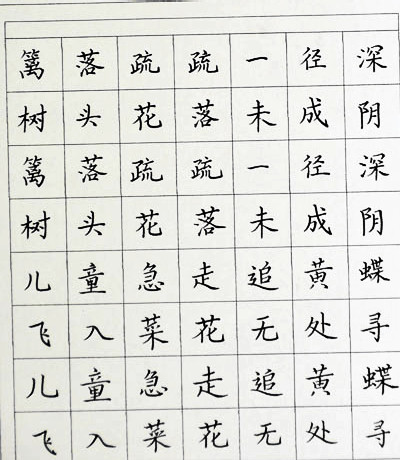 篱落疏疏一径深
树头花落未成阴
篱落疏疏一径深
树头花落未成阴
儿童急走追黄蝶
飞入菜花无处寻
儿童急走追黄蝶
飞入菜花无处寻